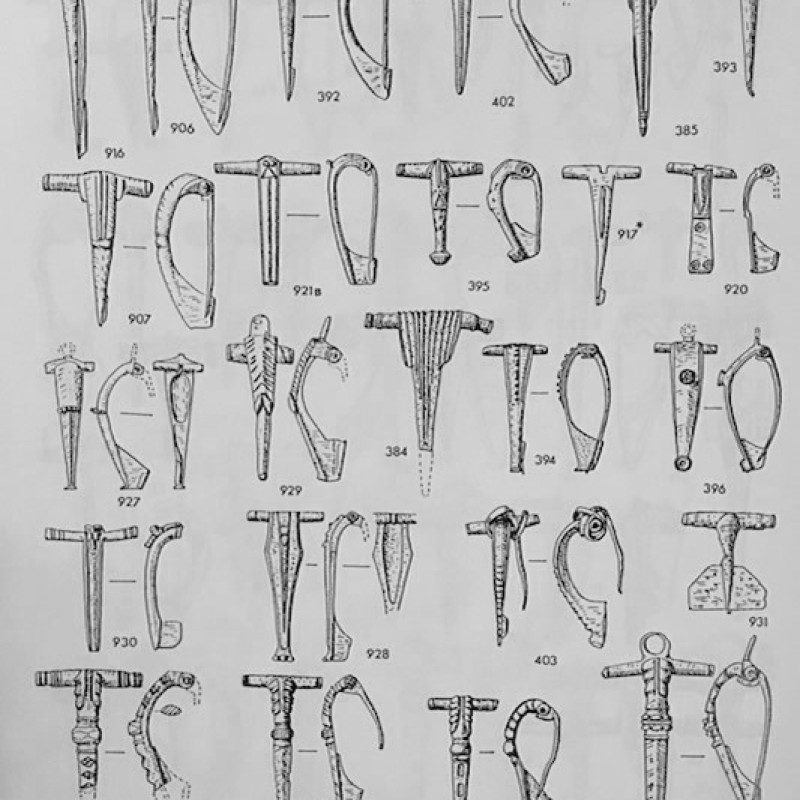 393
392
402
906
385
916
917*
921B
395
920
907
384
394
927
929
396
931
930
928
403